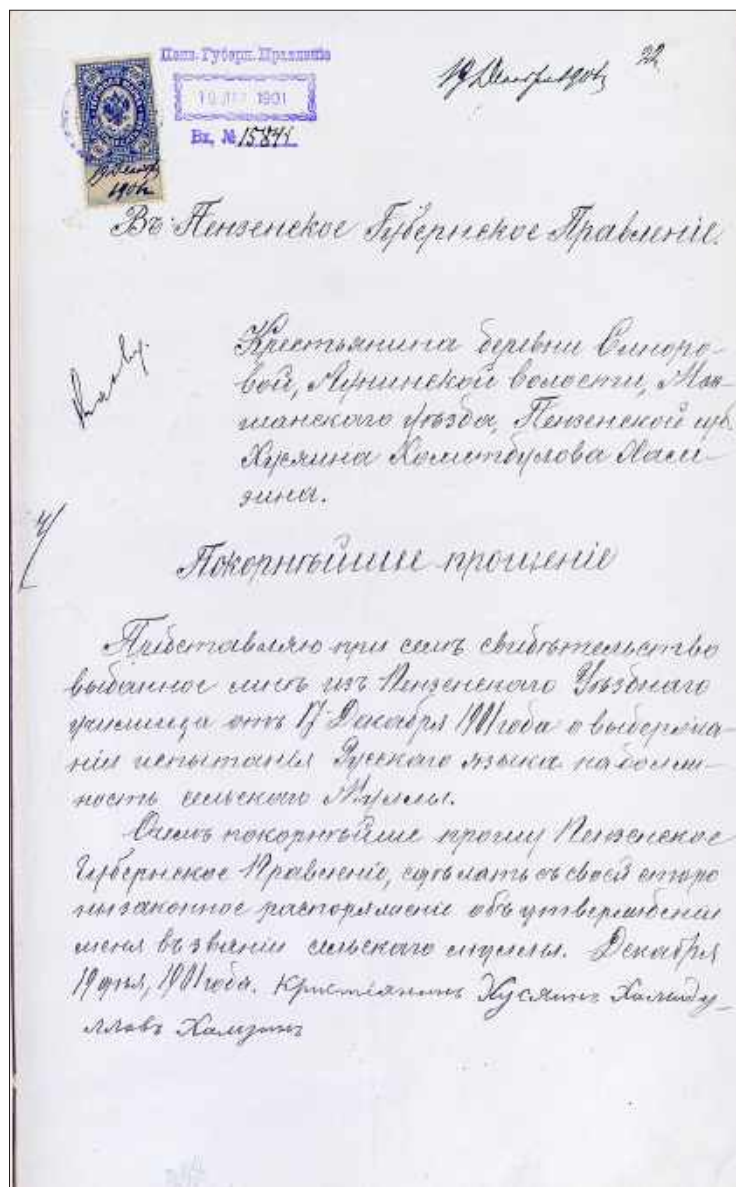 Пенз. Губерн. Правленіе
19 Декабря 1901 22
19 ДЕК 1901
Вх. № 15841
19 Декабр
1901
Въ Пензенское Губернское Правленіе.
Крестьянина деревни Синоро-
вой, Лунинской волости, Мок-
шанскаго уѣзда, Пензенской губ.
Хусяина Хамитбулова Хам-
зина.
Покорнѣйшее прошеніе
Представляю при семъ свидѣтельство
выданное мнѣ изъ Пензенскаго Уѣзднаго
училища отъ 17 Декабря 1901 года о выдержа-
ніи испытанія Русскаго языка на долж-
ность сельскаго Муллы.
Симъ покорнѣйше прошу Пензенское
Губернское Правленіе, сдѣлать съ своей сторо
ны законное распоряженіе объ утвержденіи
меня въ званіи сельскаго муллы. Декабря
19 дня, 1901 года. Кристіянинъ Хусяинъ Хамиду-
лловъ Хамзинъ